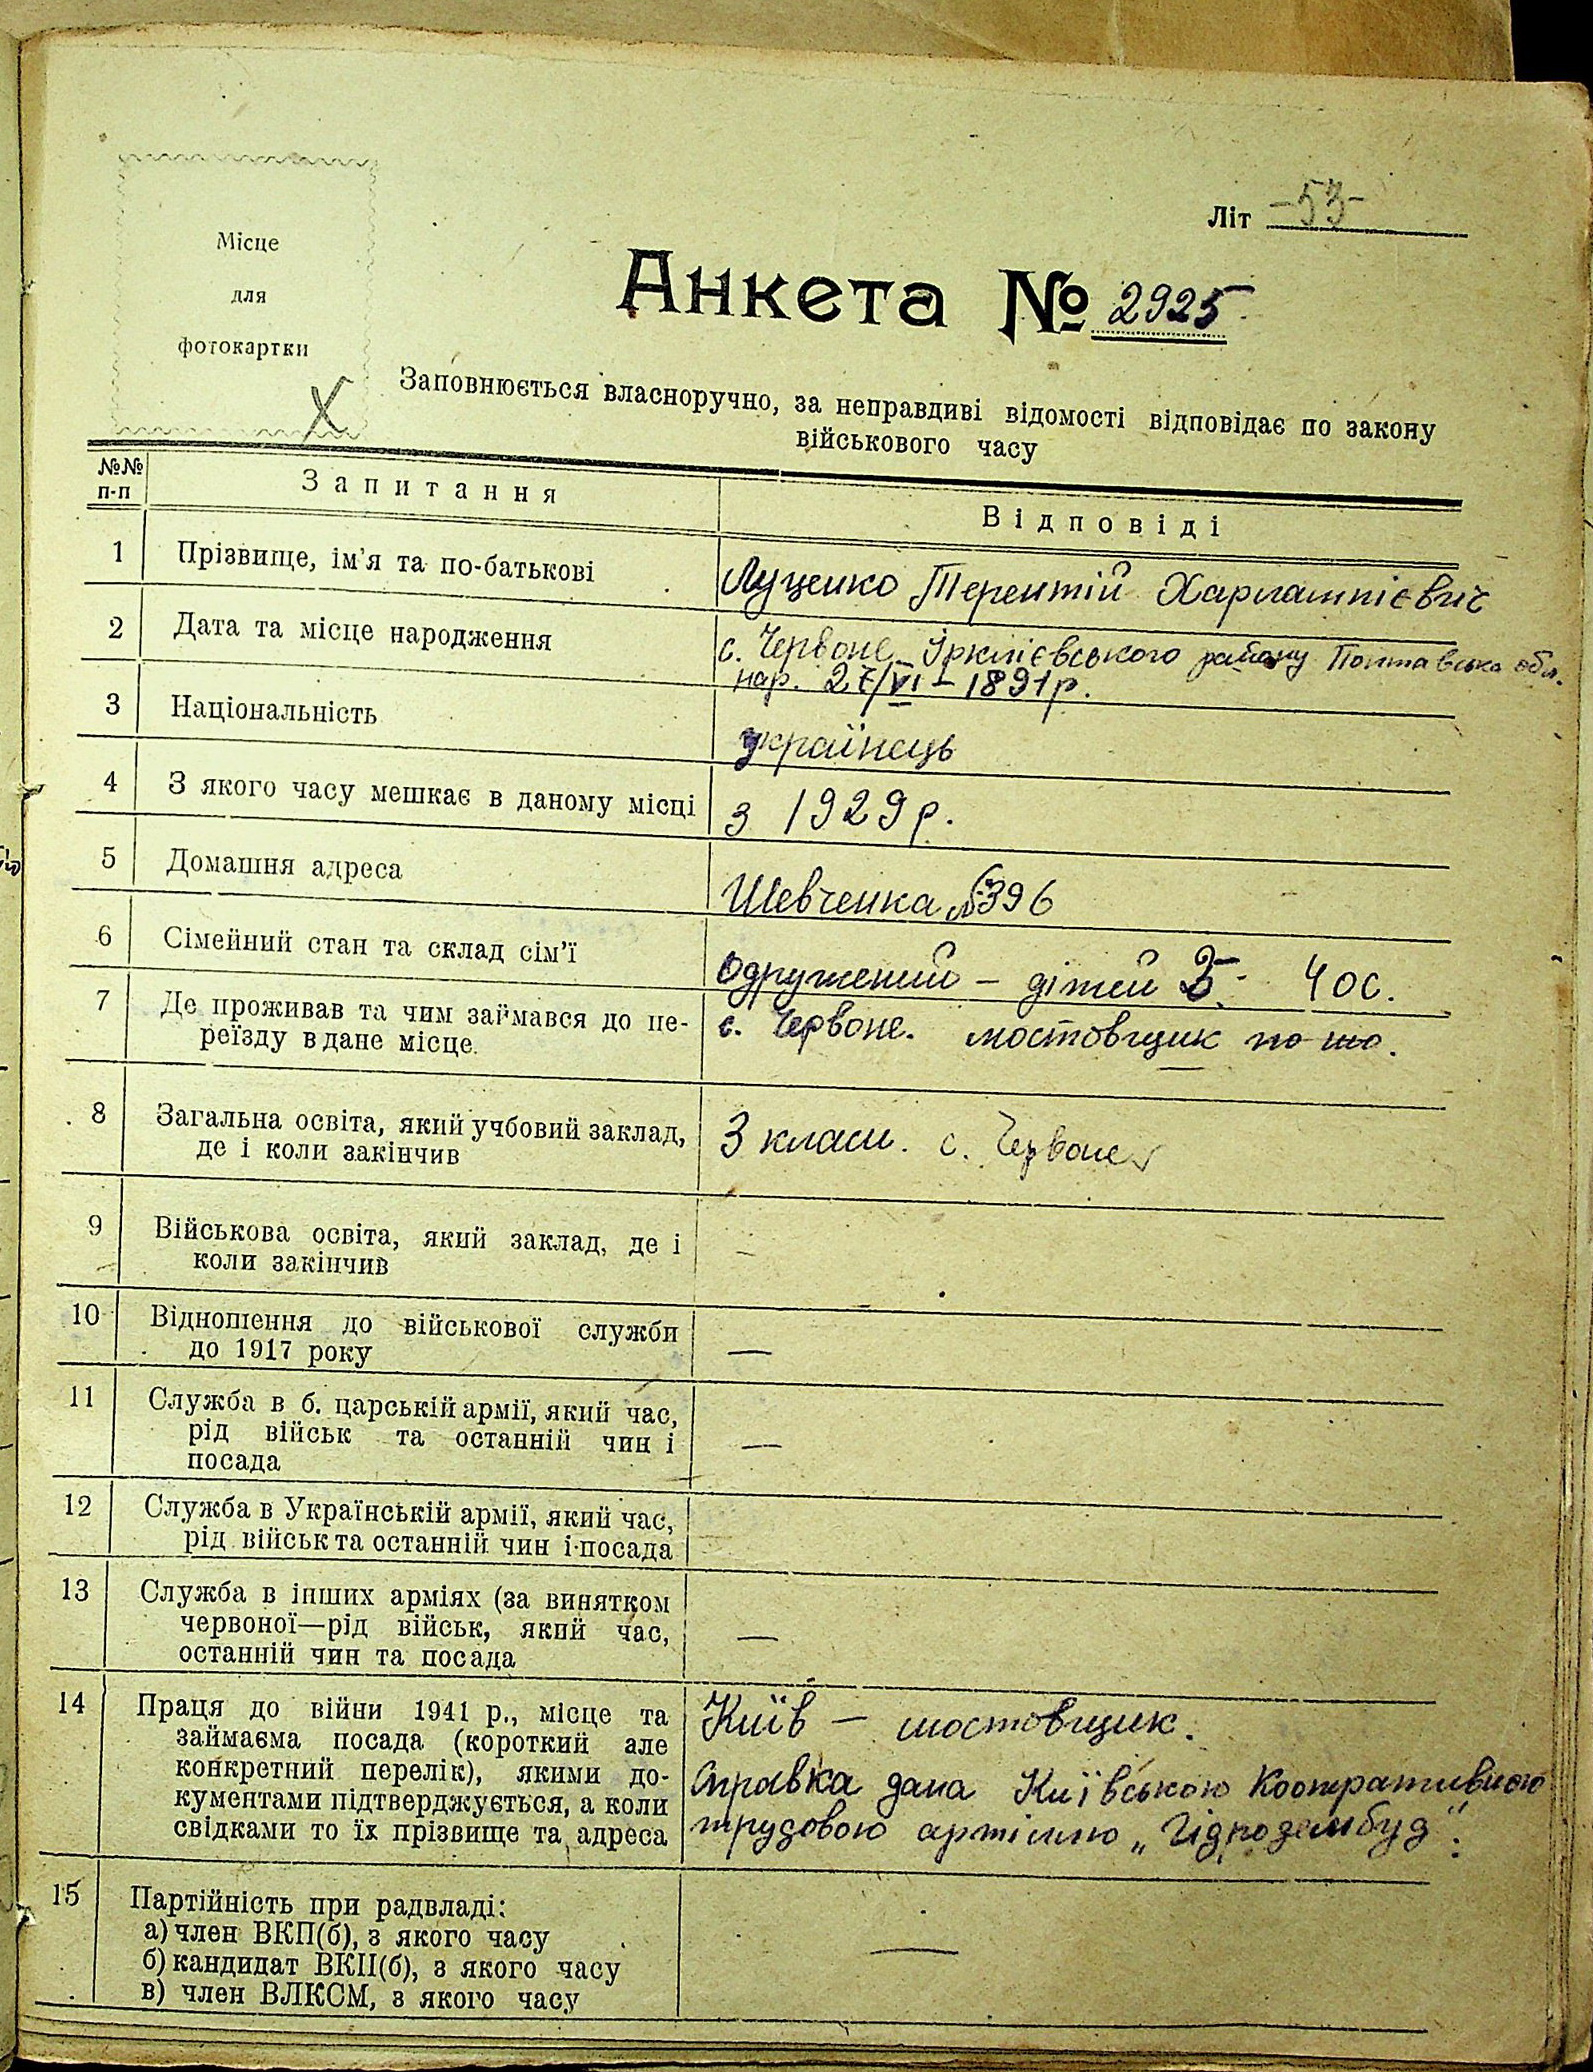 Місце
для
фотокартки
Літ -53-
Анкета № 2925
Заповнюється власноручно, за неправдиві відомості відповідає по закону
військового часу
№№ п-п
Запитання
Відповіді
1 Прізвище, ім’я та по-батькові
Луценко Терентій Харлампієвич
2 Дата та місце народження
с. Червоне Ірклієвського району Полтавська обл.
нар. /VI – 1891р.
3 Національність
українець
4 З якого часу мешкає в даному місці
з 1929р.
5 Домашня адреса
Шевченка №396
6 Сімейний стан та склад сім’ї
Одружений – дітей 4 ос.
7 Де проживав та чим займався до пе-
реїзду в дане місце
с. Червоне. мостовщик
8 Загальна освіта, який учбовий заклад,
де і коли закінчив
3 класи. с. Червоне
9 Військова освіта, який заклад, де і
коли закінчив
–
10 Відношення до військової служби
до 1917 року
—
11 Служба в б. царській армії, який час,
рід військ та останній чин і
посада
—
12 Служба в Українській армії, який час,
рід військ та останній чин і посада
13 Служба в інших арміях (за винятком
червоної—рід військ, який час,
останній чин та посада
—
14 Праця до війни 1941 р., місце та
займаєма посада (короткий але
конкретний перелік), якими до-
кументами підтверджується, а коли
свідками то їх прізвище та адреса
Київ – мостовщик.
Справка дана Київською Кооперативною
трудовою артіллю „Гідрозембуд“.
15 Партійність при радвладі:
а) член ВКП(б), з якого часу
б) кандидат ВКП(б), з якого часу
в) член ВЛКСМ, з якого часу
—